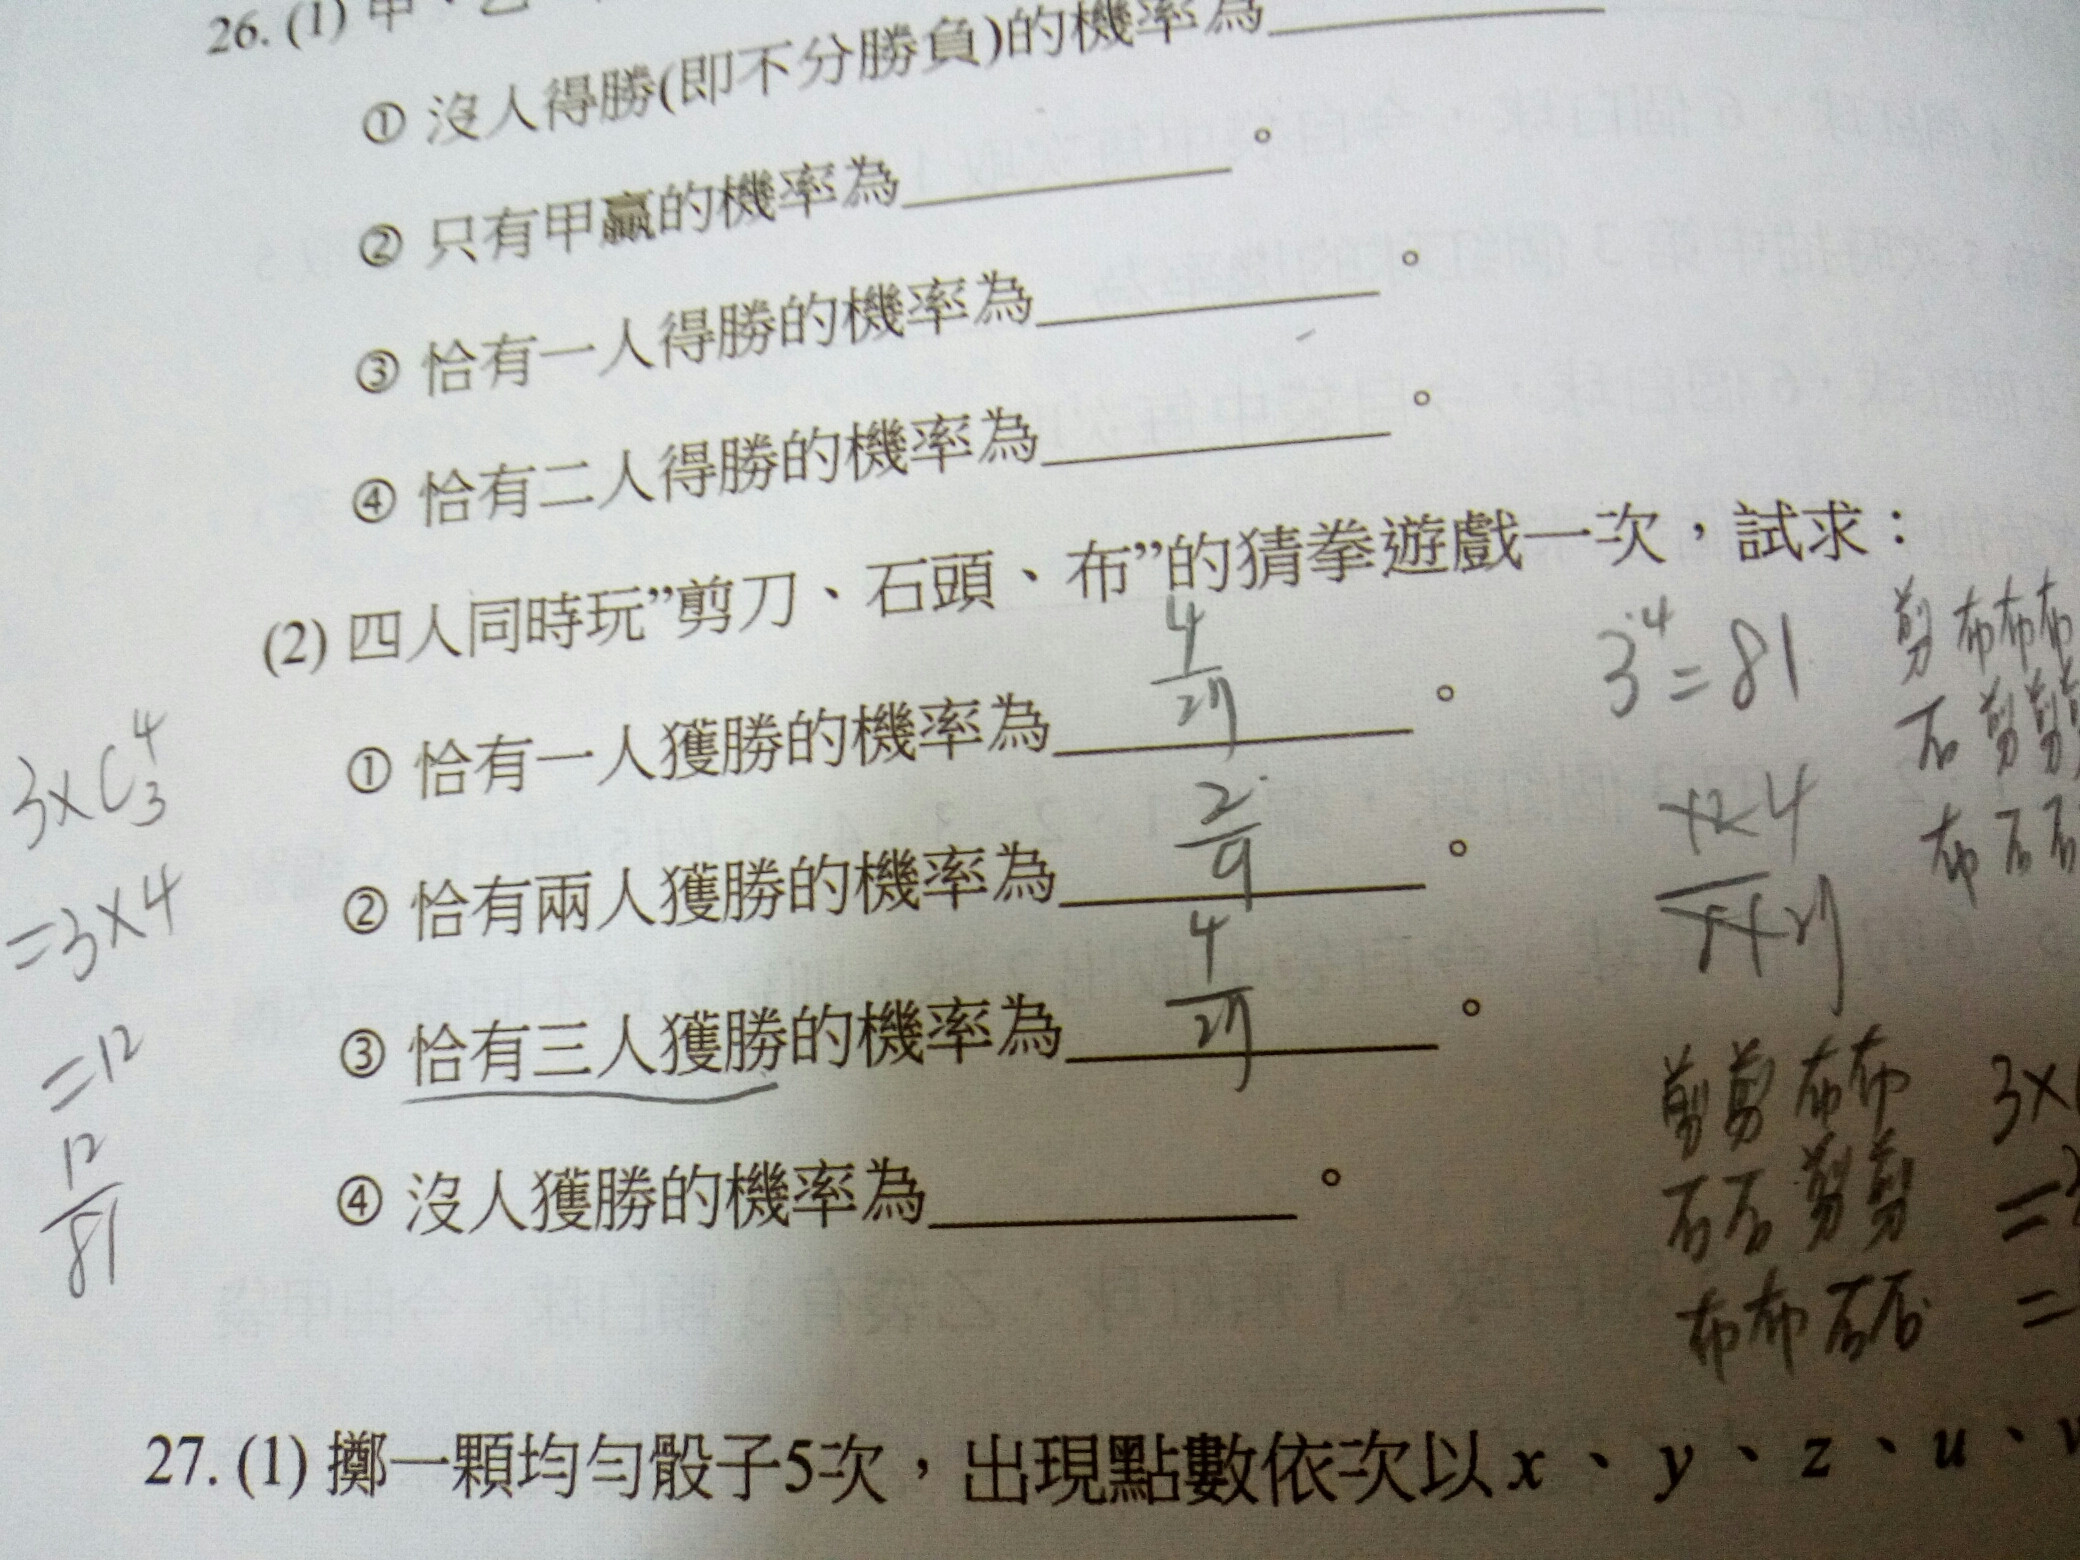 26. (1) 甲、乙
① 沒人得勝(即不分勝負)的機率為
② 只有甲贏的機率為 。
③ 恰有一人得勝的機率為 。
④ 恰有二人得勝的機率為 。
(2) 四人同時玩”剪刀、石頭、布”的猜拳遊戲一次，試求：
① 恰有一人獲勝的機率為 4/27 。
② 恰有兩人獲勝的機率為 2/9 。
③ 恰有三人獲勝的機率為 4/27 。
④ 沒人獲勝的機率為 。
3×C⁴₃
=3×4
=12
12/81
3⁴=81
剪 布布布
石 剪剪剪
布 石石
12 4
27
剪剪 布布 3×
石石 剪剪 =
布布 石石 =
27. (1) 擲一顆均勻骰子5次，出現點數依次以 x、y、z、u、v